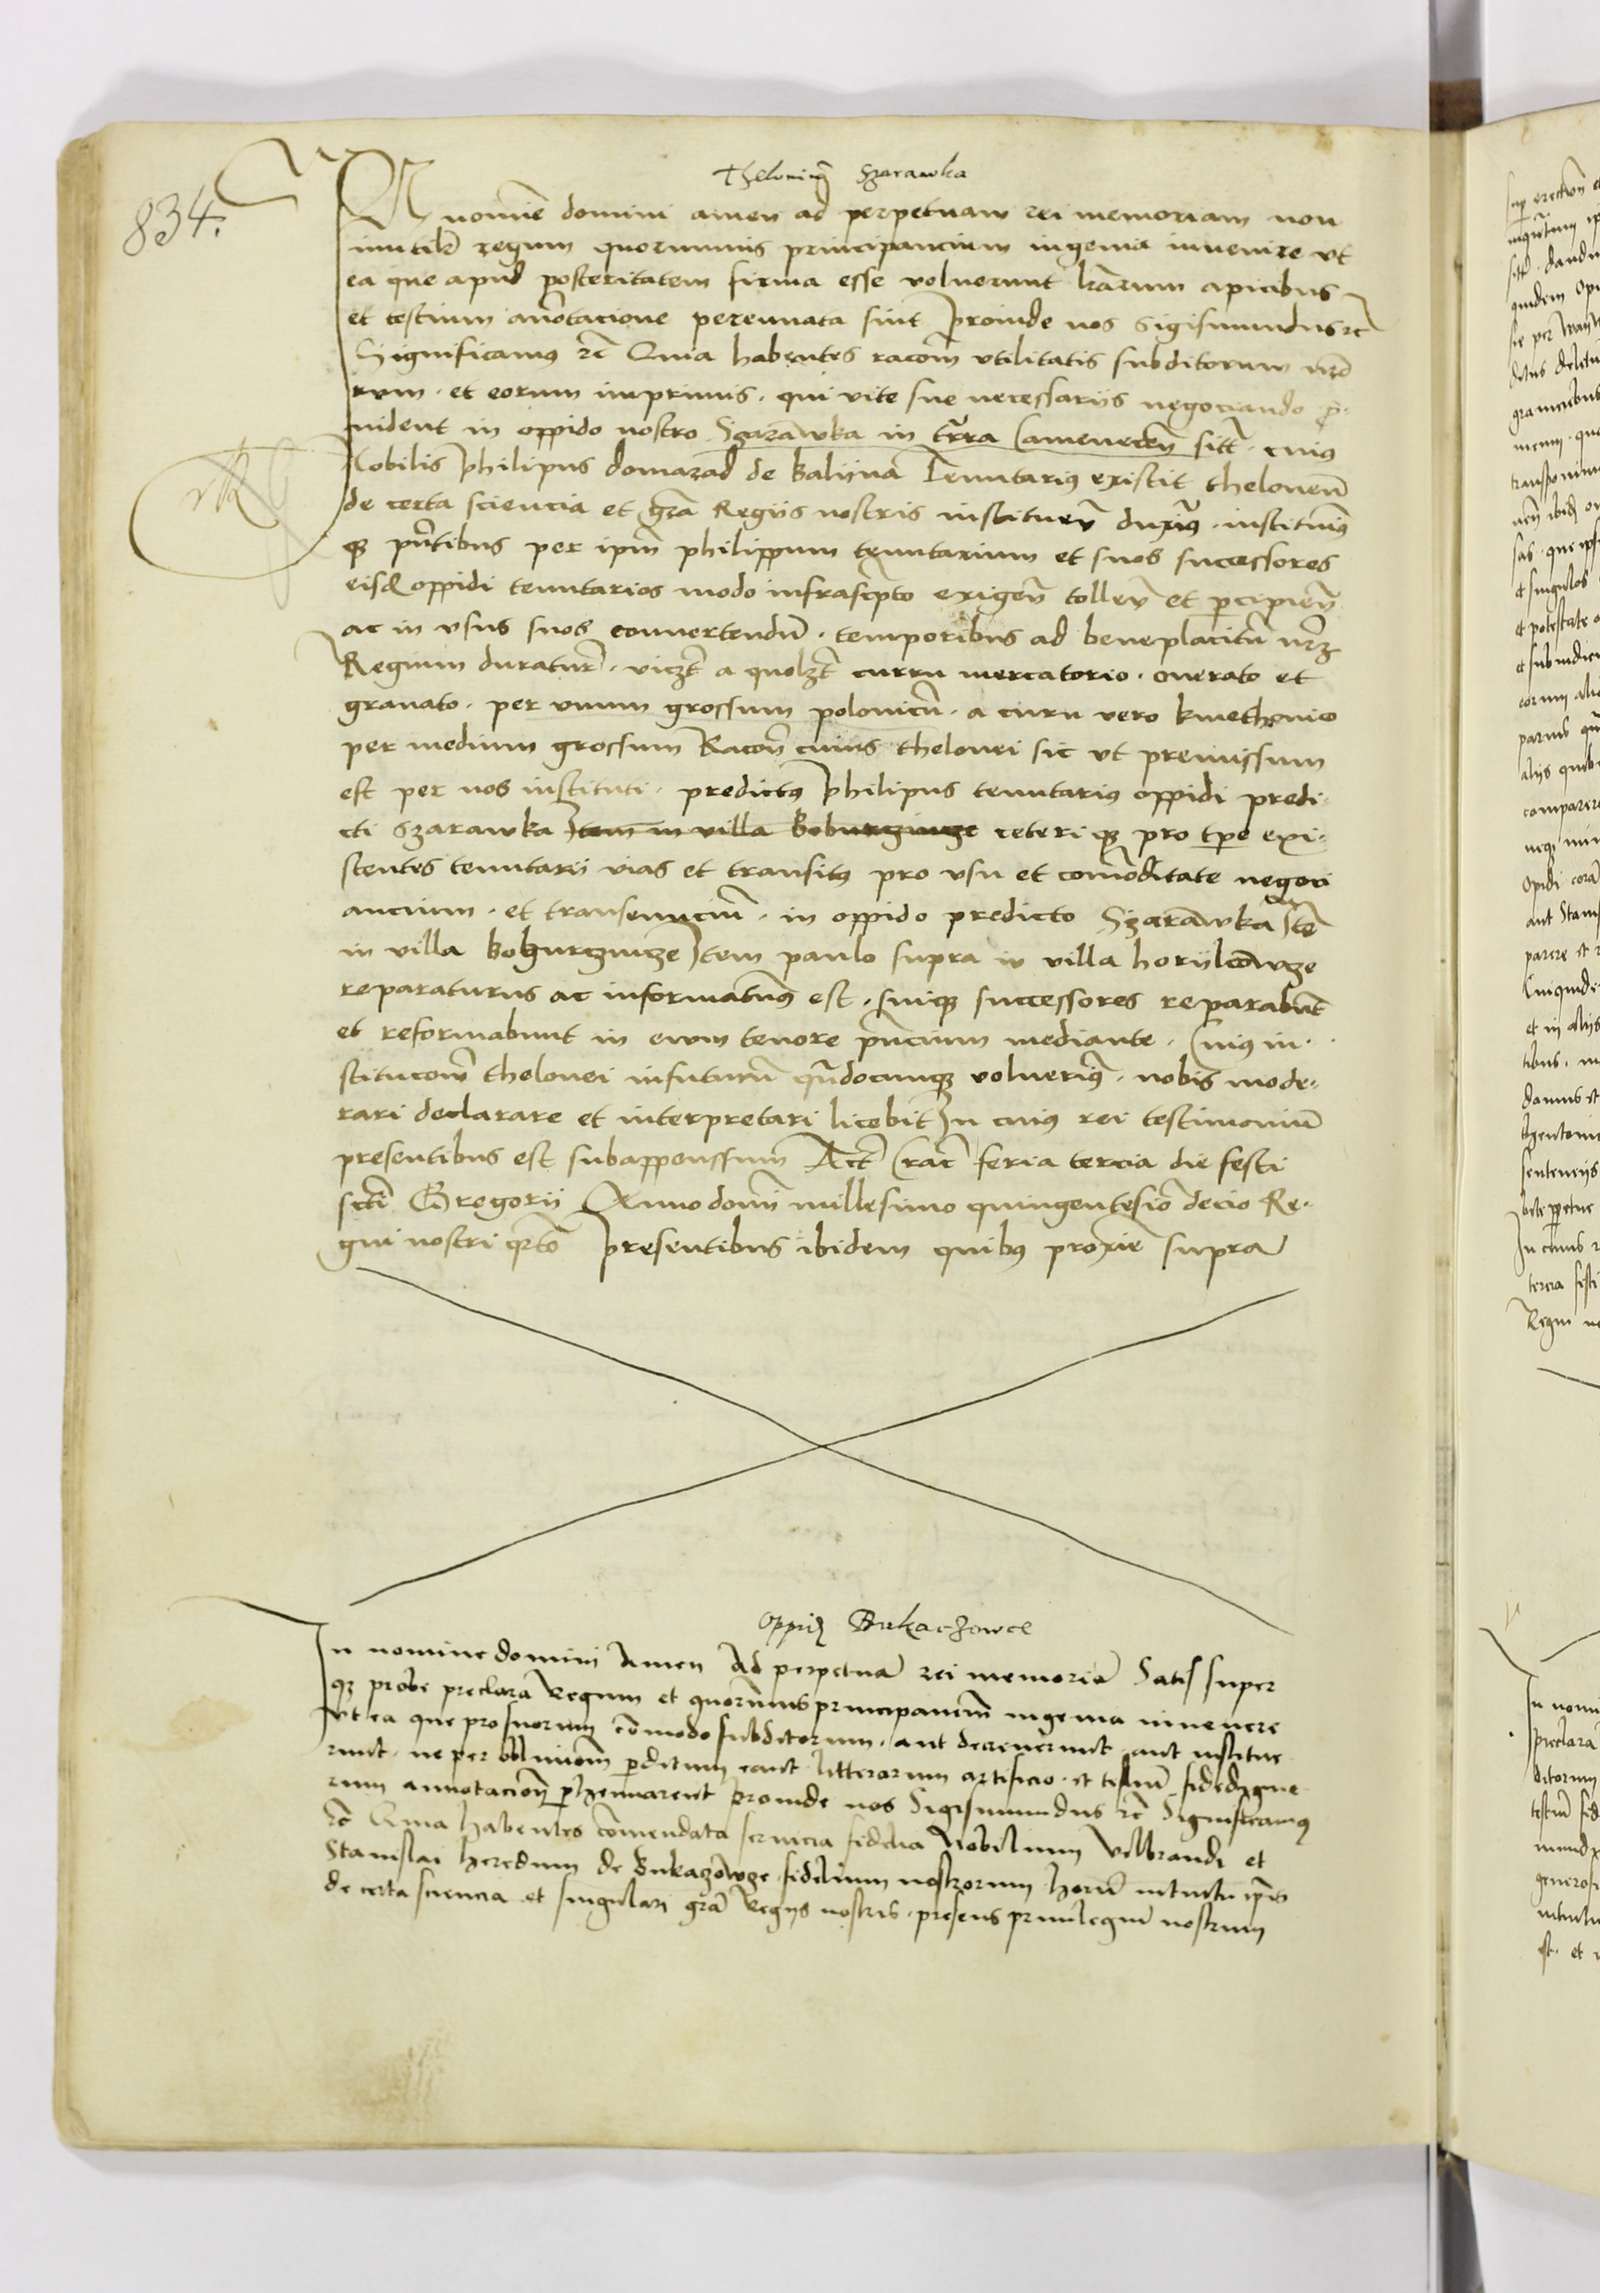 834.
Theloniu͂ Szarawka
In nomīe domini amen ad perpetuam rei memoriam non
inutilr̄ regum quorumuis principancium ingenia inuenire vt
ea que apud posteritatem firma esse voluerunt lr̄arum apicibus
et testium an̄otacione perennata sint Proinde nos Sigismundus ꝛc̄
Significamus ꝛc̄ Quia habentes rac̄om vtilitatis subditorum nr̄o
rum · et eorum inprimis · qui vite sue necessariis negociando p̄·
uident in oppido nostro Szarawka in tr̄ra Camenecen̄ sitt̄ · cuius
Nobilis Philipus domarad de kalijna Tenutariꝰ existit theloneu͂
de certa sciencia et gr̄a Regiis nostris instituen̄ duxim̄ꝰ · instituimꝰ
qꝫ pn̄tibus per ipm̄ philippum tenutarium et suos successores
eisd̄ oppidi tenutarios modo infrascp̄to exigen̄ tollen̄ et ꝑcipien̄
ac in vsus suos conuertendu͂ · temporibus ad beneplacitu͂ nr̄ꝫ
Regium duratur̄ · viczt̄ a quolꝫt̄ curru mercatorio · onerato et
grauato · per vnum grossum polonicu͂ · a curu vero kmethonico
per medium grossum Racōn cuius thelonei sic vt premissum
est per nos instituti · predictꝰ Philipus tenutariꝰ oppidi predi·
cti Szarawka Item in villa kohurzincze ceteri qꝫ pro tp̄e exi·
stentes tenutarii vias et transitꝰ pro vsu et com̄oditate negoci
ancium · et transeunciu͂ · in oppido predicto Szarawka Ite͂
in villa kohurzincze Item paulo supra in villa horijlcowcze
reparaturus ac informaturꝰ est · suiqꝫ successores reparabūt
et reformabunt in ewm tenore pn̄cium mediante · Cuius in·
stitucōm thelonei infuturu͂ qn̄documqꝫ voluerimꝰ · nobis mode·
rari declarare et interpretari licebit In cuius rei testimoniu͂
presentibus est subappenssum Act̄ Crac̄ feria tercia die festi
scti Gregorii Anno domi̅ millesimo quingentesio̅ decio̅ Re·
gni nostri q̄rto Presentibus ibidem quibꝰ proxīe supra
Oppid Bukaczowce
In nomine domini Amen Ad perpetua͂ rei memoria͂ Satis super
qꝫ probe preclara Regum et quorumuis principanciu͂ ingenia inuenere
vt ea que pro suorum com̄odo subditorum · aut decreuerunt aut institue
runt · ne per obliuiom̄ ꝑditum eant litterarum artificio · et testiu͂ fidedigno
rum annotacion̄ ꝑhennarent Proinde nos Sigismundus ꝛc̄ Significamꝰ
ꝛc̄ Quia habentes com̄endata seruicia fidelia Nobilium Vilbrandi et
Stanislai heredum de Bukaczowcze fidelium nostrorum horu͂ intuitu ip̄is
de certa sciencia et singulari gr̄a Regiis nostris · presens priuilegiu͂ nostrum